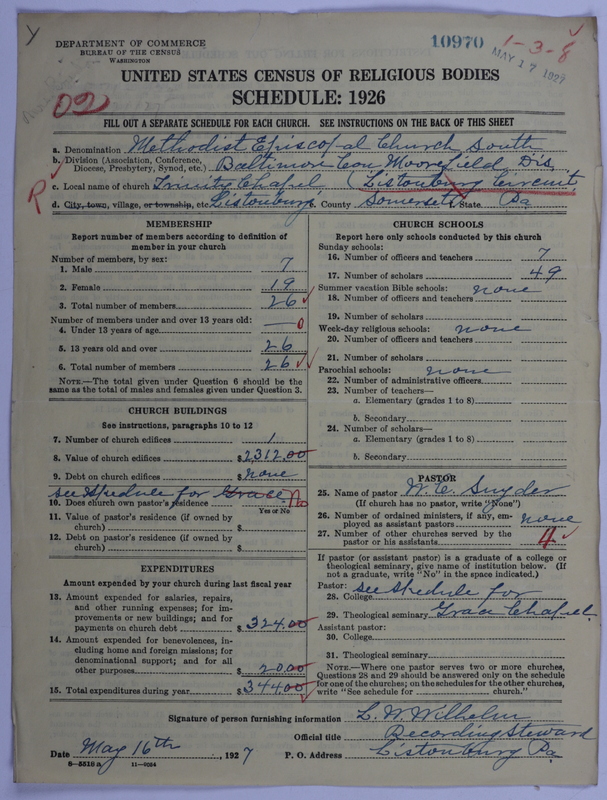 DEPARTMENT OF COMMERCE
BUREAU OF THE CENSUS
WASHINGTON
10970
1-3-8
MAY 17 1927
UNITED STATES CENSUS OF RELIGIOUS BODIES
SCHEDULE: 1926
02
FILL OUT A SEPARATE SCHEDULE FOR EACH CHURCH. SEE INSTRUCTIONS ON THE BACK OF THIS SHEET
a. Denomination Methodist Episcopal Church South
b. Division (Association, Conference, Diocese, Presbytery, Synod, etc.) Baltimore Con Moorefield Dis.
R
c. Local name of church Trinity Chapel (Listonburg Circuit
d. City, town, village, or township, etc. Listonburg e. County Somerset f. State Pa
MEMBERSHIP
Report number of members according to definition of member in your church
Number of members, by sex:
1. Male 7
2. Female 19
3. Total number of members 26
Number of members under and over 13 years old:
4. Under 13 years of age — 0
5. 13 years old and over 26
6. Total number of members 26
NOTE.—The total given under Question 6 should be the same as the total of males and females given under Question 3.
CHURCH BUILDINGS
See instructions, paragraphs 10 to 12
7. Number of church edifices 1
8. Value of church edifices $2312.00
9. Debt on church edifices $ none
see Shedule for Grace
10. Does church own pastor's residence No
Yes or No
11. Value of pastor's residence (if owned by church) $
12. Debt on pastor's residence (if owned by church) $
EXPENDITURES
Amount expended by your church during last fiscal year
13. Amount expended for salaries, repairs, and other running expenses; for improvements or new buildings; and for payments on church debt $324.00
14. Amount expended for benevolences, including home and foreign missions; for denominational support; and for all other purposes $20.00
15. Total expenditures during year $344.00
CHURCH SCHOOLS
Report here only schools conducted by this church
Sunday schools:
16. Number of officers and teachers 7
17. Number of scholars 49
Summer vacation Bible schools: none
18. Number of officers and teachers
19. Number of scholars
Week-day religious schools: none
20. Number of officers and teachers
21. Number of scholars
Parochial schools: none
22. Number of administrative officers
23. Number of teachers—
a. Elementary (grades 1 to 8)
b. Secondary
24. Number of scholars—
a. Elementary (grades 1 to 8)
b. Secondary
PASTOR
25. Name of pastor W. C. Snyder
(If church has no pastor, write "None")
26. Number of ordained ministers, if any, employed as assistant pastors none
27. Number of other churches served by the pastor or his assistants 4
If pastor (or assistant pastor) is a graduate of a college or theological seminary, give name of institution below. (If not a graduate, write "No" in the space indicated.)
Pastor: see Shedule for
28. College
29. Theological seminary Grace Chapel
Assistant pastor:
30. College
31. Theological seminary
NOTE.—Where one pastor serves two or more churches, Questions 28 and 29 should be answered only on the schedule for one of the churches; on the schedules for the other churches, write "See schedule for ........ church."
Signature of person furnishing information L. W. Wilhelm
Official title Recording Steward
Date May 16th, 1927 P. O. Address Listonburg Pa
8-5518 a 11-9024